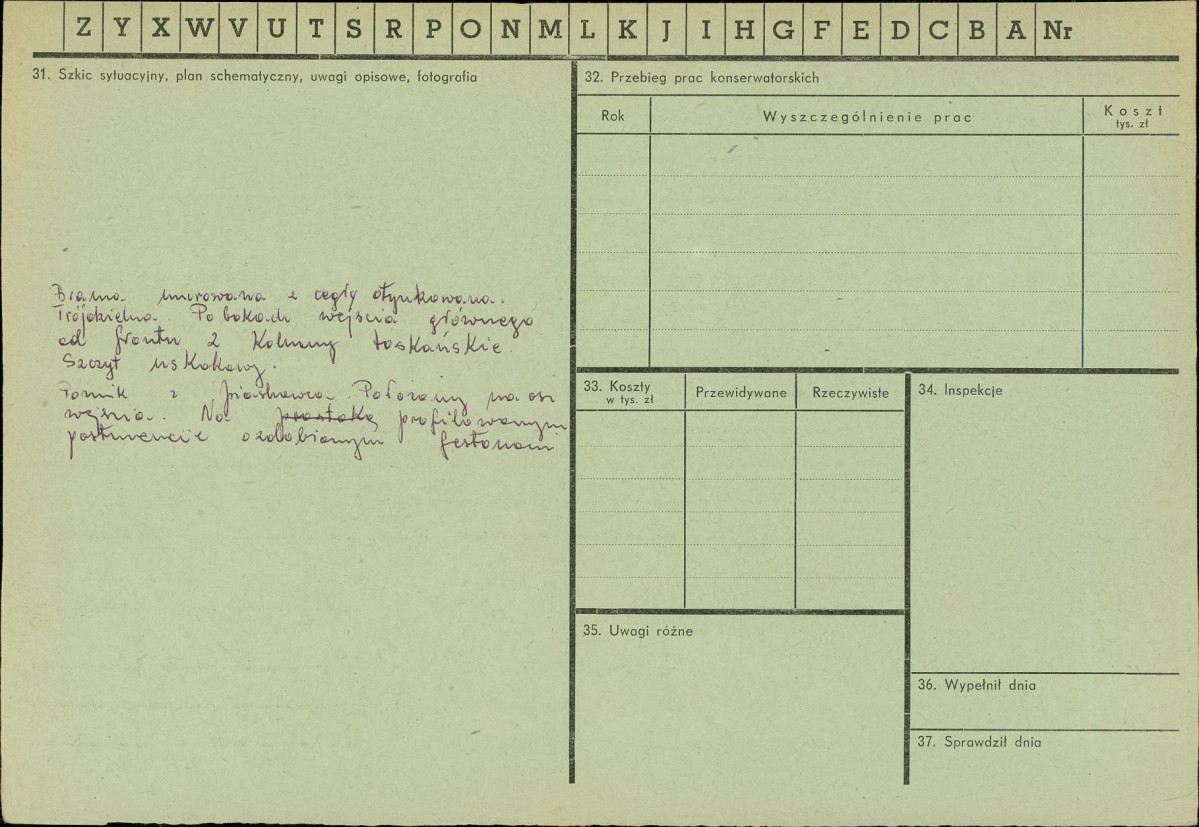 Z Y X W V U T S R P O N M L K J I H G F E D C B A Nr
31. Szkic sytuacyjny, plan schematyczny, uwagi opisowe, fotografia
Brama murowana z cegły otynkowana.
Trójdzielna. Po bokach wejścia głównego
od frontu 2 Kolumny toskańskie.
Szczyt uskokowy.
Pomnik z piaskowca. Położony na osi
wejścia. Na prostoką profilowanym
postumencie ozdobionym festonami
32. Przebieg prac konserwatorskich
Rok Wyszczególnienie prac Koszt
tys. zł
33. Koszty
w tys. zł
Przewidywane Rzeczywiste
34. Inspekcje
35. Uwagi różne
36. Wypełnił dnia
37. Sprawdził dnia